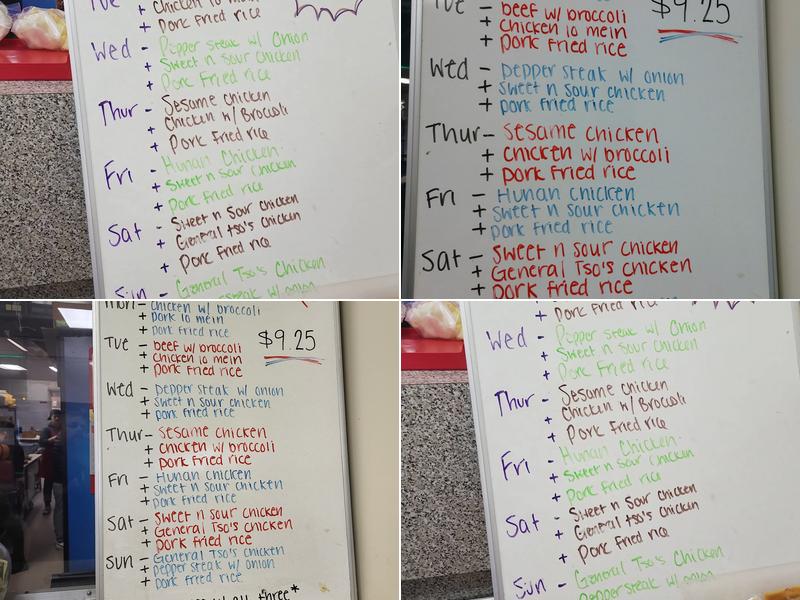 Tue - Chicken lo mein
+ Pork Fried rice
Wed - Pepper steak w/ Onion
+ Sweet n Sour chicken
+ Pork Fried rice
Thur - Sesame chicken
+ Chicken w/ Broccoli
+ Pork Fried rice
Fri - Hunan Chicken
+ Sweet n Sour Chicken
+ Pork Fried rice
Sat - Sweet n Sour chicken
+ General Tso's chicken
+ Pork Fried rice
Sun - General Tso's Chicken
steak w/ onion
Tue - beef w/ broccoli
+ chicken lo mein
+ pork fried rice
$9.25
Wed - pepper steak w/ onion
+ sweet n sour chicken
+ pork fried rice
Thur - sesame chicken
+ chicken w/ broccoli
+ pork fried rice
Fri - Hunan chicken
+ sweet n sour chicken
+ pork fried rice
Sat - sweet n sour chicken
+ General Tso's chicken
+ pork fried rice
Mon - chicken w/ broccoli
+ pork lo mein
+ pork fried rice
Tue - beef w/ broccoli
+ chicken lo mein
+ pork fried rice
$9.25
Wed - pepper steak w/ onion
+ sweet n sour chicken
+ pork fried rice
Thur - sesame chicken
+ chicken w/ broccoli
+ pork fried rice
Fri - Hunan chicken
+ sweet n sour chicken
+ pork fried rice
Sat - sweet n sour chicken
+ General Tso's chicken
+ pork fried rice
Sun - General Tso's chicken
+ pepper steak w/ onion
+ pork fried rice
all three*
+ Pork Fried rice
Wed - Pepper steak w/ Onion
+ Sweet n Sour chicken
+ Pork Fried rice
Thur - Sesame chicken
+ Chicken w/ Broccoli
+ Pork Fried rice
Fri - Hunan Chicken
+ Sweet n Sour Chicken
+ Pork Fried rice
Sat - Sweet n Sour chicken
+ General Tso's chicken
+ Pork Fried rice
Sun - General Tso's Chicken
Pepper steak w/ onion